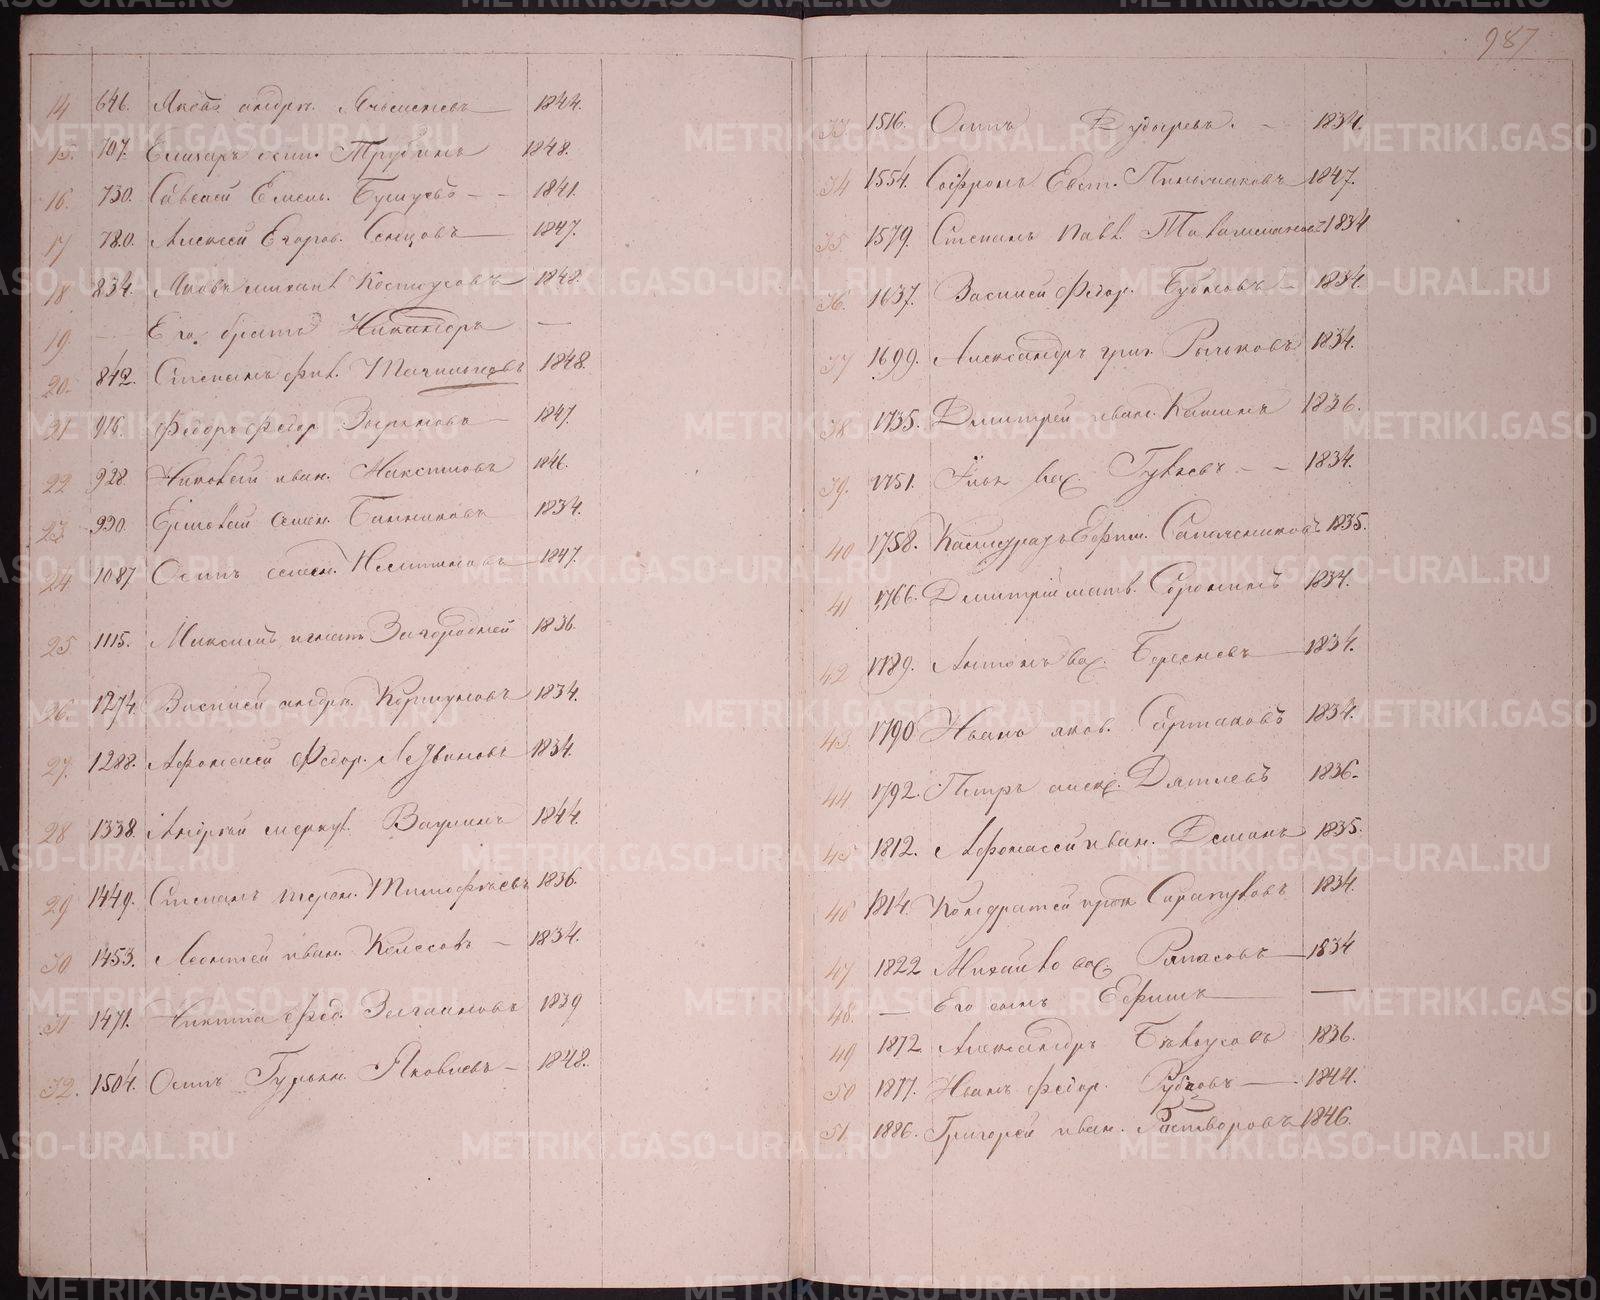 987
14 646. Яковъ андре. 1844.
15. 707. Елизаръ осип. Трубинъ 1848.
16. 730. Савелей Емель. Бушуевъ 1841.
17 780. Алексей Егоров. Сенцовъ 1847.
18 834. Яковъ михаил Костоусовъ 1848.
19. Его братъ Никандръ
20. 842. Степанъ фил. 1848.
21 916. Федоръ федор. Зыряновъ 1847.
22 928. Николай иван. 1846.
23. 990. Ермолай семен. Банниковъ 1834.
24 1087 Осипъ семен. 1847.
25 1115. Максимъ игнат. Загородней 1836.
26. 1274. Василей андре. Коршуновъ 1834.
27. 1288. Афонасей Федор. 1834.
28 1338. Андрей меркул. Ваулинъ 1844.
29 1449. Степанъ терен. Тимофеевъ 1836.
30 1453. Леонтей иван. 1834.
31 1471. Никита фед. 1839
32. 1504. Осипъ Гурьян. Яковлевъ 1848.
33 1516. Осипъ 1834.
34 1554. Софронъ Евст. 1847.
35 1579. Степанъ павл. 1834
36. 1637. Василей федор. Бубновъ 1834.
37 1699. Александръ григ. Рычковъ 1834.
38 1735. Дмитрей иван. Кашинъ 1836.
39. 1751. Илья вас. Гулевъ 1834.
40 1758. Ефим. Сапожниковъ 1835.
41 1766. Дмитрiй матв. Сорокинъ 1834.
42 1789. Антонъ вас. Береневъ 1834.
43. 1790 Иванъ яков. Сартаковъ 1834.
44 1792. Петръ алекс. Дятлевъ 1836.
45 1812. Афонасей иван. Деминъ 1835.
46 1814. Кондратей прок. Сарапуловъ 1834.
47 1822 Михайло вас. 1834
48. Его сынъ Ефимъ
49 1872 Александръ Белоусовъ 1836.
50 1877. Иванъ федор. Рубцовъ 1844.
51. 1886. Григорей иван. Растворовъ 1846.